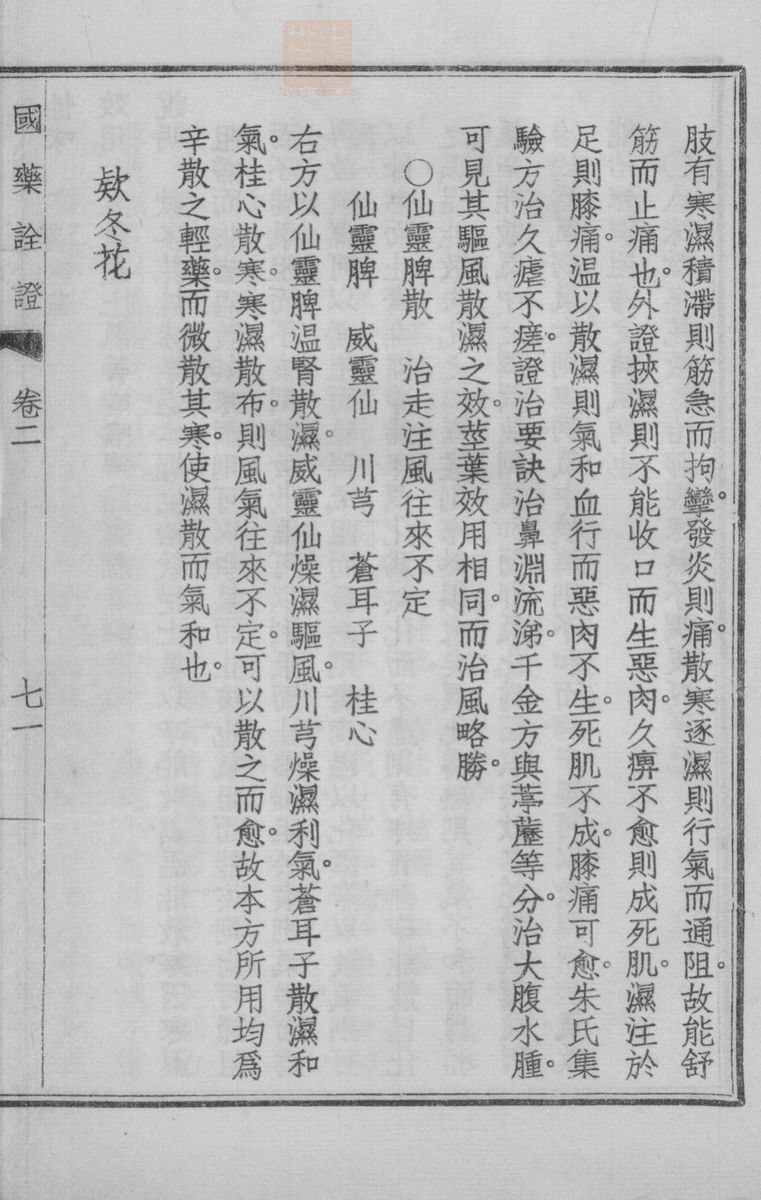 肢有寒濕積滯則筋急而拘攣。發炎則痛。散寒逐濕則行氣而通阻。故能舒
筋而止痛也。外證挾濕則不能收口而生惡肉。久痹不愈則成死肌。濕注於
足則膝痛。温以散濕則氣和血行而惡肉不生。死肌不成。膝痛可愈。朱氏集
驗方治久瘧不瘥。證治要訣治鼻淵流涕。千金方與葶藶等分。治大腹水腫。
可見其驅風散濕之效。莖葉效用相同。而治風略勝。
○仙靈脾散　治走注風往來不定
仙靈脾　威靈仙　川芎　蒼耳子　桂心
右方以仙靈脾温腎散濕。威靈仙燥濕驅風。川芎燥濕利氣。蒼耳子散濕和
氣。桂心散寒。寒濕散布。則風氣往來不定。可以散之而愈。故本方所用均爲
辛散之輕藥。而微散其寒。使濕散而氣和也。
欵冬花
國藥詮證　卷二　七一